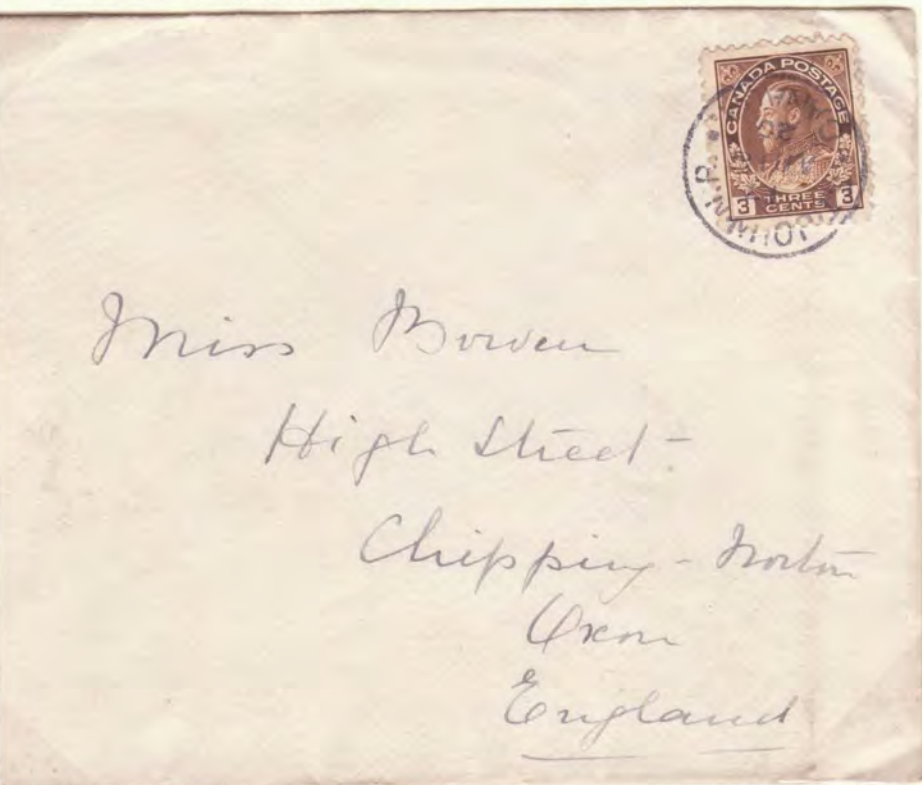 CANADA POSTAGE
3 THREE CENTS 3
Miss Bowen
High Street
Chipping-Norton
Oxon
England